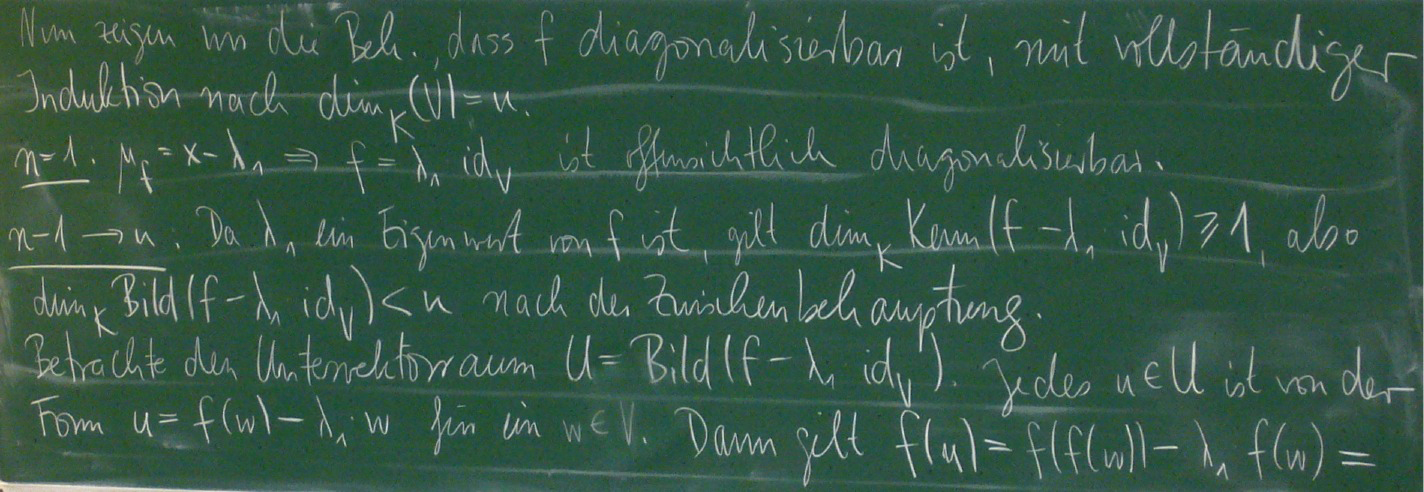 Nun zeigen wir die Beh., dass f diagonalisierbar ist, mit vollständiger
Induktion nach dim_K(V) = n.
n=1. μ_f = x-λ_1 ⇒ f = λ_1 id_V ist offensichtlich diagonalisierbar.
n-1 → n. Da λ_1 ein Eigenwert von f ist, gilt dim_K Kern(f - λ_1 id_V) ⩾ 1, also
dim_K Bild(f - λ_1 id_V) < n nach der Zwischenbehauptung.
Betrachte den Untervektorraum U = Bild(f - λ_1 id_V). Jedes u ∈ U ist von der
Form u = f(w) - λ_1 · w für ein w ∈ V. Dann gilt f(u) = f(f(w)) - λ_1 f(w) =